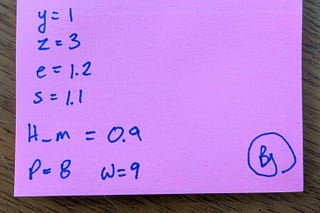 y = 1
z = 3
e = 1.2
s = 1.1
H_m = 0.9
P = 8 W = 9
By